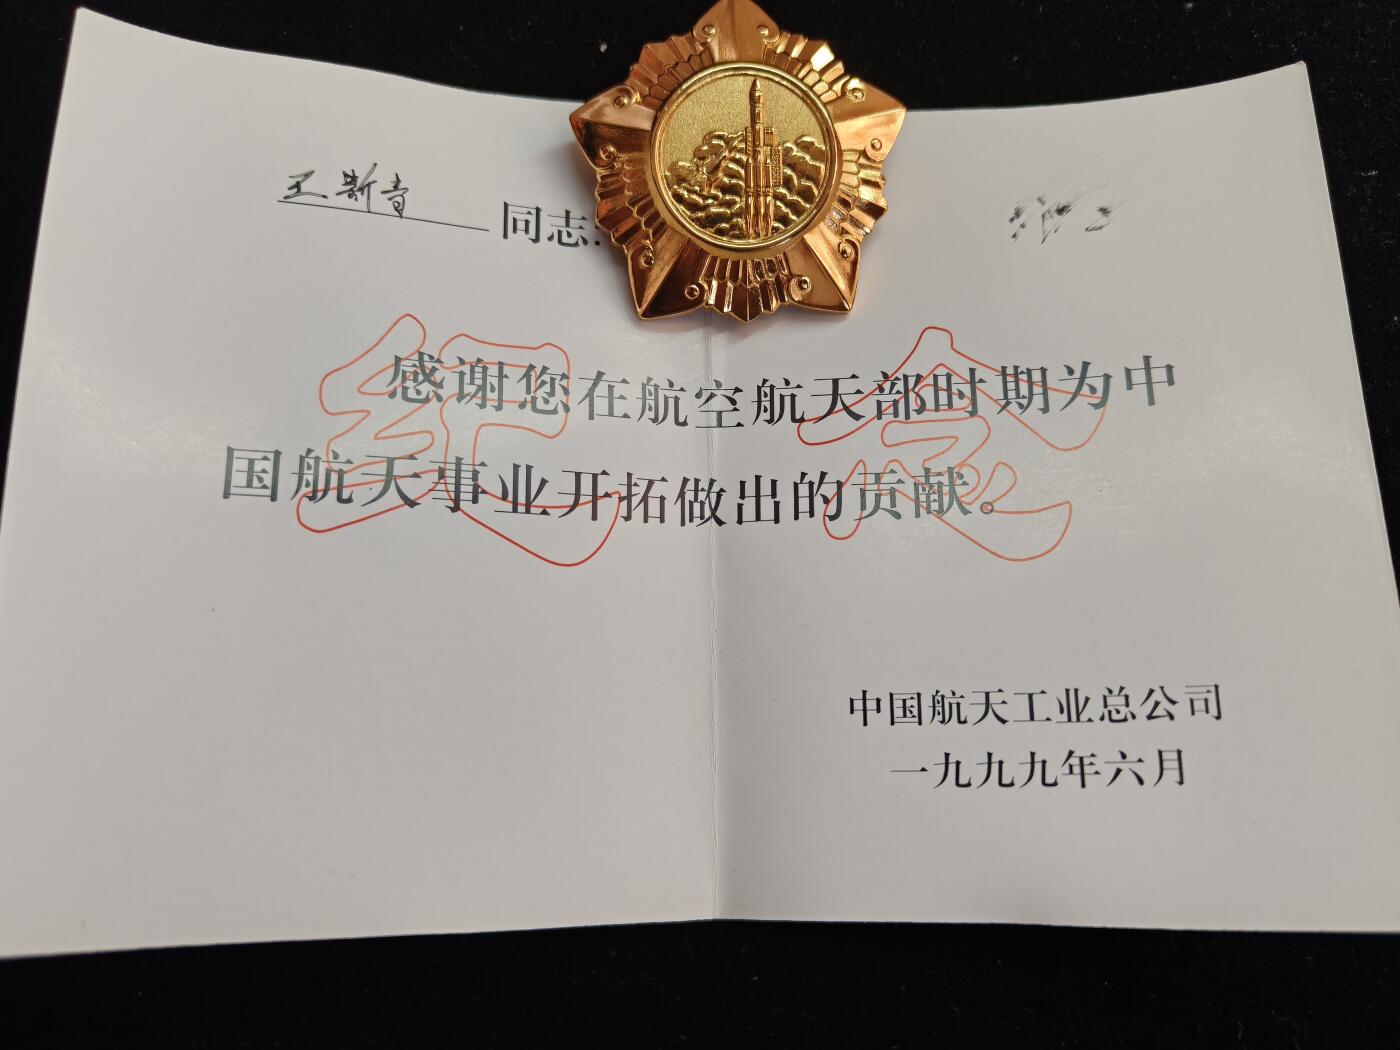 王斯青 同志:
纪念
感谢您在航空航天部时期为中
国航天事业开拓做出的贡献。
中国航天工业总公司
一九九九年六月